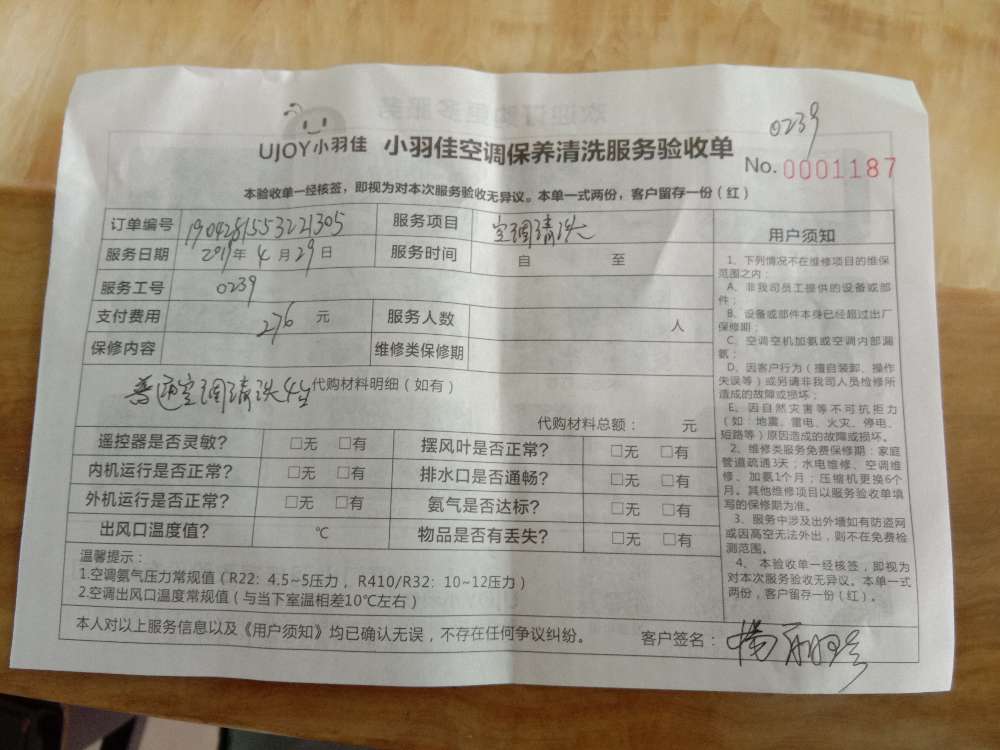 0239
UJOY小羽佳 小羽佳空调保养清洗服务验收单
No. 0001187
本验收单一经核签，即视为对本次服务验收无异议。本单一式两份，客户留存一份（红）
订单编号 1904281553221305 服务项目 空调清洗
服务日期 2019年 4月 29日 服务时间 自 至
服务工号 0239
支付费用 276 元 服务人数 人
保修内容 维修类保修期
普通空调清洗4台 代购材料明细（如有）
代购材料总额： 元
遥控器是否灵敏? □无 □有 摆风叶是否正常? □无 □有
内机运行是否正常? □无 □有 排水口是否通畅? □无 □有
外机运行是否正常? □无 □有 氨气是否达标? □无 □有
出风口温度值? ℃ 物品是否有丢失? □无 □有
温馨提示：
1.空调氨气压力常规值（R22: 4.5~5压力， R410/R32: 10~12压力）
2.空调出风口温度常规值（与当下室温相差10℃左右）
本人对以上服务信息以及《用户须知》均已确认无误，不存在任何争议纠纷。 客户签名：
用户须知
1、下列情况不在维修项目的维保
范围之内：
A、非我司员工提供的设备或部
件；
B、设备或部件本身已经超过出厂
保修期；
C、空调空机加氨或空调内部漏
氨；
D、因客户行为（擅自装卸、操作
失误等）或另请非我司人员检修所
造成的故障或损坏；
E、因自然灾害等不可抗拒力
（如：地震、雷电、火灾、停电、
短路等）原因造成的故障或损坏。
2、维修类服务免费保修期：家庭
管道疏通3天；水电维修、空调维
修、加氨1个月；压缩机更换6个
月。其他维修项目以服务验收单填
写的保修期为准。
3、服务中涉及出外墙如有防盗网
或因高空无法外出，则不在免费检
测范围。
4、本验收单一经核签，即视为
对本次服务验收无异议。本单一式
两份，客户留存一份（红）。